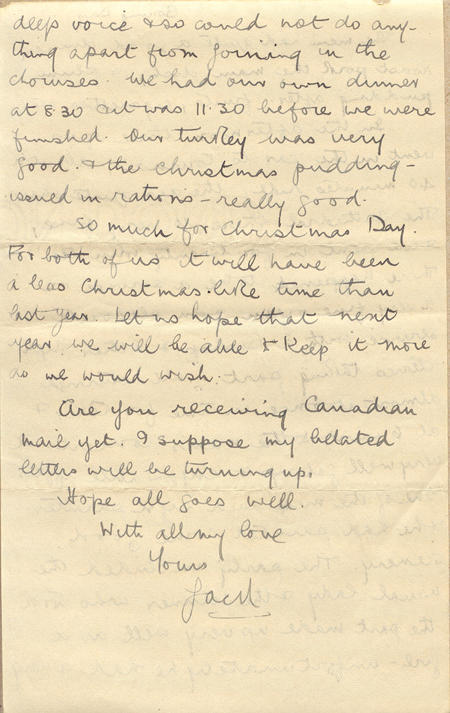 deep voice & so could not do any-
thing apart from joining in the
choruses. We had our own dinner
at 8.30 & it was 11.30 before we were
finished. Our turkey was very
good. & the Christmas pudding -
issued in rations - really good.
So much for Christmas Day.
For both of us it will have been
a less Christmas-like time than
last year. Let us hope that next
year we will be able to keep it more
as we would wish.
Are you receiving Canadian
mail yet. I suppose my belated
letters will be turning up.
Hope all goes well.
With all my love
Yours
Jack